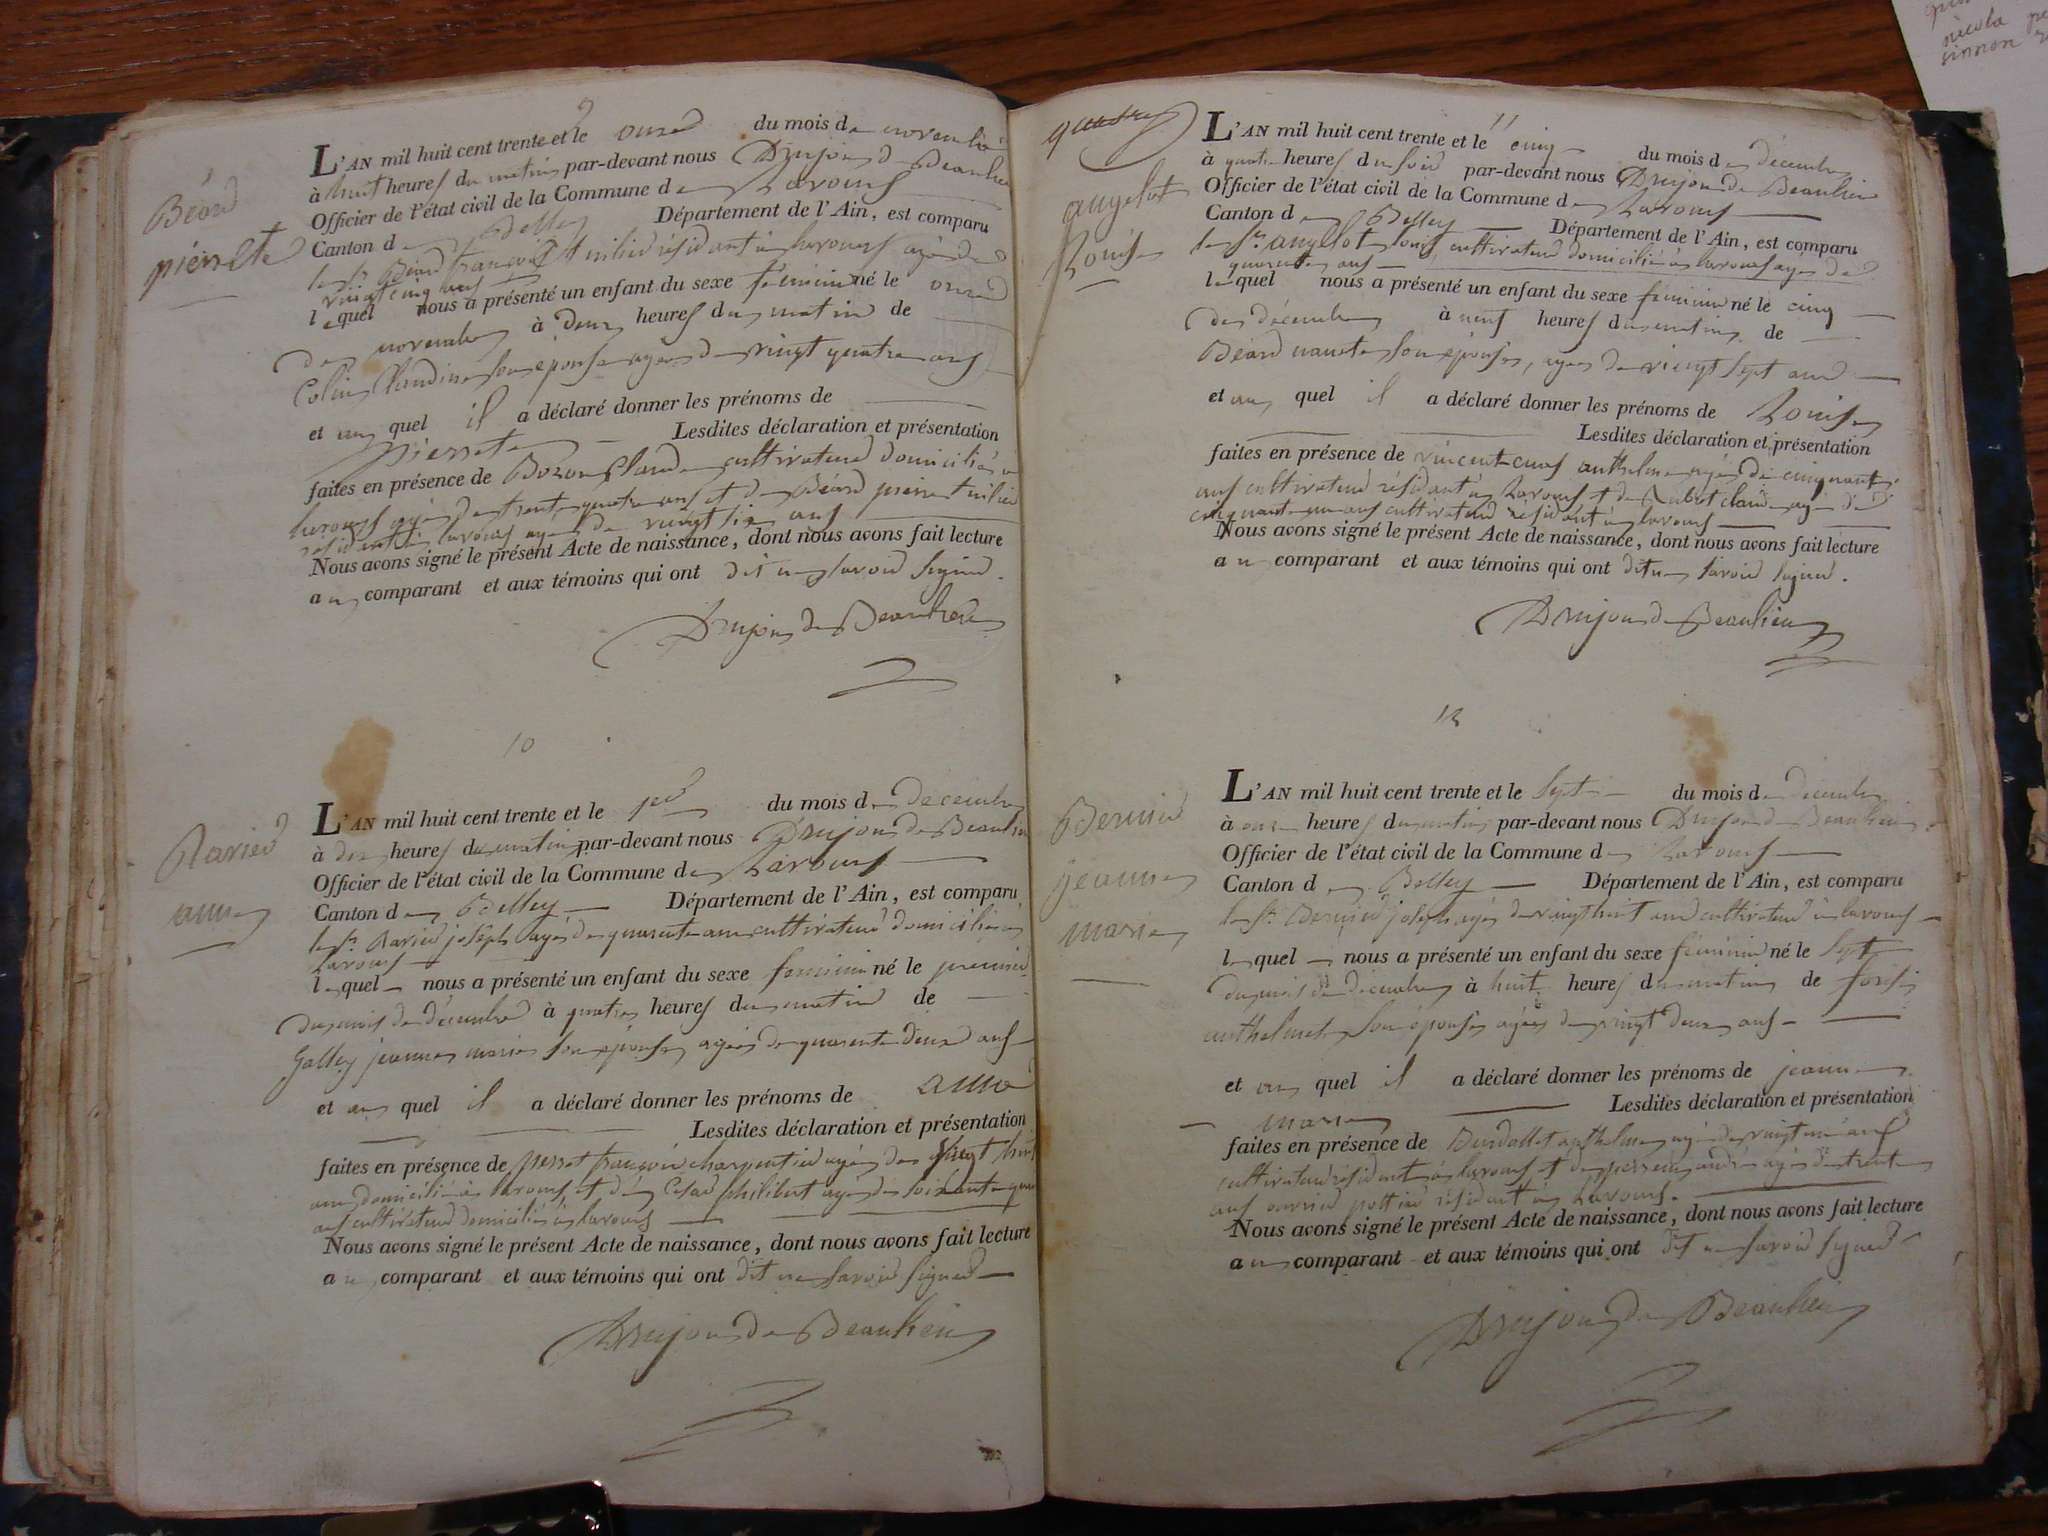 9
Béard
pierrete
L'AN mil huit cent trente et le onze du mois de novembre
à huit heures du matin par-devant nous Drujon de Beaulieu
Officier de l'état civil de la Commune de Lavours
Canton de Belley Département de l'Ain, est comparu
le sr Béard françois résidant à lavours agé de
vingt cinq ans
lequel nous a présenté un enfant du sexe féminin né le onze
de novembre à deux heures du matin de
Colin Claudine son épouse agée de vingt quatre ans
et au quel il a déclaré donner les prénoms de
pierrete Lesdites déclaration et présentation
faites en présence de Bozon Claude cultivateur domicilié à
lavours agé de trente quatre ans et de Béard pierre
résidant à lavours agé de vingt six ans
Nous avons signé le présent Acte de naissance, dont nous avons fait lecture
au comparant et aux témoins qui ont dit ne savoir signer.
Drujon de Beaulieu
10
Ravier
anne
L'AN mil huit cent trente et le per du mois de decembre
à dix heures du matin par-devant nous Drujon de Beaulieu
Officier de l'état civil de la Commune de Lavours
Canton de Belley Département de l'Ain, est comparu
le sr Ravier joseph agé de quarente ans cultivateur domicilié à
Lavours
lequel nous a présenté un enfant du sexe féminin né le premier
du mois de décembre à quatre heures du matin de
Galley jeanne marie son épouse agée de quarente deux ans
et au quel il a déclaré donner les prénoms de anne
Lesdites déclaration et présentation
faites en présence de perret françois charpentier agé de vingt huit
ans domicilié à lavours et de César philibert agé de soixante quatre
ans cultivateur domicilié à lavours
Nous avons signé le présent Acte de naissance, dont nous avons fait lecture
au comparant et aux témoins qui ont dit ne savoir signer
Drujon de Beaulieu
11
angelot
Louise
L'AN mil huit cent trente et le cinq du mois de décembre
à quatre heures du soir par-devant nous Drujon de Beaulieu
Officier de l'état civil de la Commune de Lavours
Canton de Belley Département de l'Ain, est comparu
le sr angelot louis cultivateur domicilié à lavours agé de
quarente ans
lequel nous a présenté un enfant du sexe féminin né le cinq
de décembre à neuf heures du matin de
Béard nanete son épouse, agée de vingt sept ans
et au quel il a déclaré donner les prénoms de Louise
Lesdites déclaration et présentation
faites en présence de anthelme agé de cinquante
ans cultivateur résidant à Lavours et de claude agé de
cinquante un ans cultivateur résidant à lavours
Nous avons signé le présent Acte de naissance, dont nous avons fait lecture
au comparant et aux témoins qui ont dit ne savoir signer.
Drujon de Beaulieu
12
Bernier
jeanne
marie
L'AN mil huit cent trente et le sept du mois de décembre
à onze heures du matin par-devant nous Drujon de Beaulieu
Officier de l'état civil de la Commune de Lavours
Canton de Belley Département de l'Ain, est comparu
le sr Bernier joseph agé de vingt huit ans cultivateur à lavours
lequel nous a présenté un enfant du sexe féminin né le sept
du mois de décembre à huit heures du matin de
anthelmete son épouse agée de vingt deux ans
et au quel il a déclaré donner les prénoms de jeanne
marie Lesdites déclaration et présentation
faites en présence de anthelme agé de vingt neuf ans
cultivateur résidant à lavours et de andré agé de trente
ans ouvrier pottier résidant à Lavours.
Nous avons signé le présent Acte de naissance, dont nous avons fait lecture
au comparant et aux témoins qui ont dit ne savoir signer
Drujon de Beaulieu